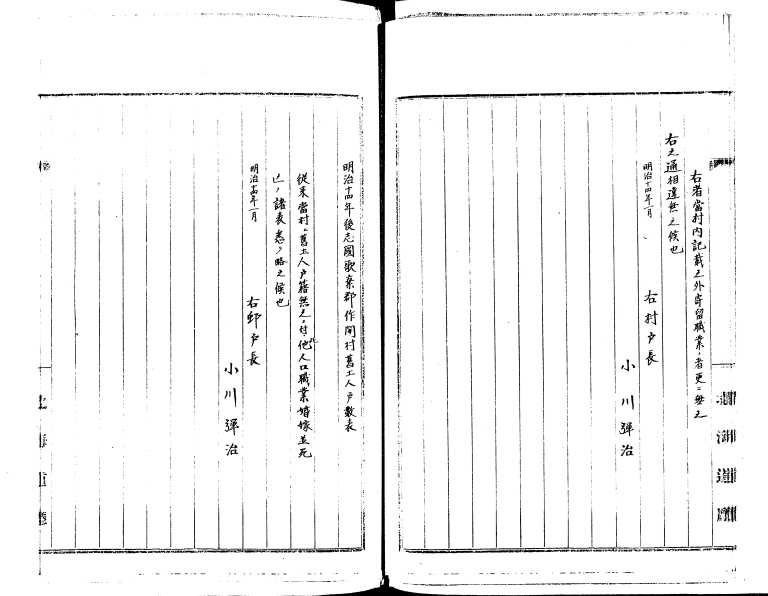 右者當村内記載之外寄留職業ノ者更ニ無之
右之通相違無之候也
明治十四年一月
右村戸長
小川弾治
北海道廳
明治十四年後志國歌棄郡作開村舊土人戸數表
従来當村ニ舊土人戸籍無之ニ付他人口職業婚嫁並死
亡ノ諸表悉ク略之候也
明治十四年一月
右邨戸長
小川弾治
北海道廳